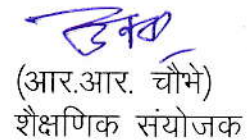 (आर.आर. चौभे)
शैक्षणिक संयोजक